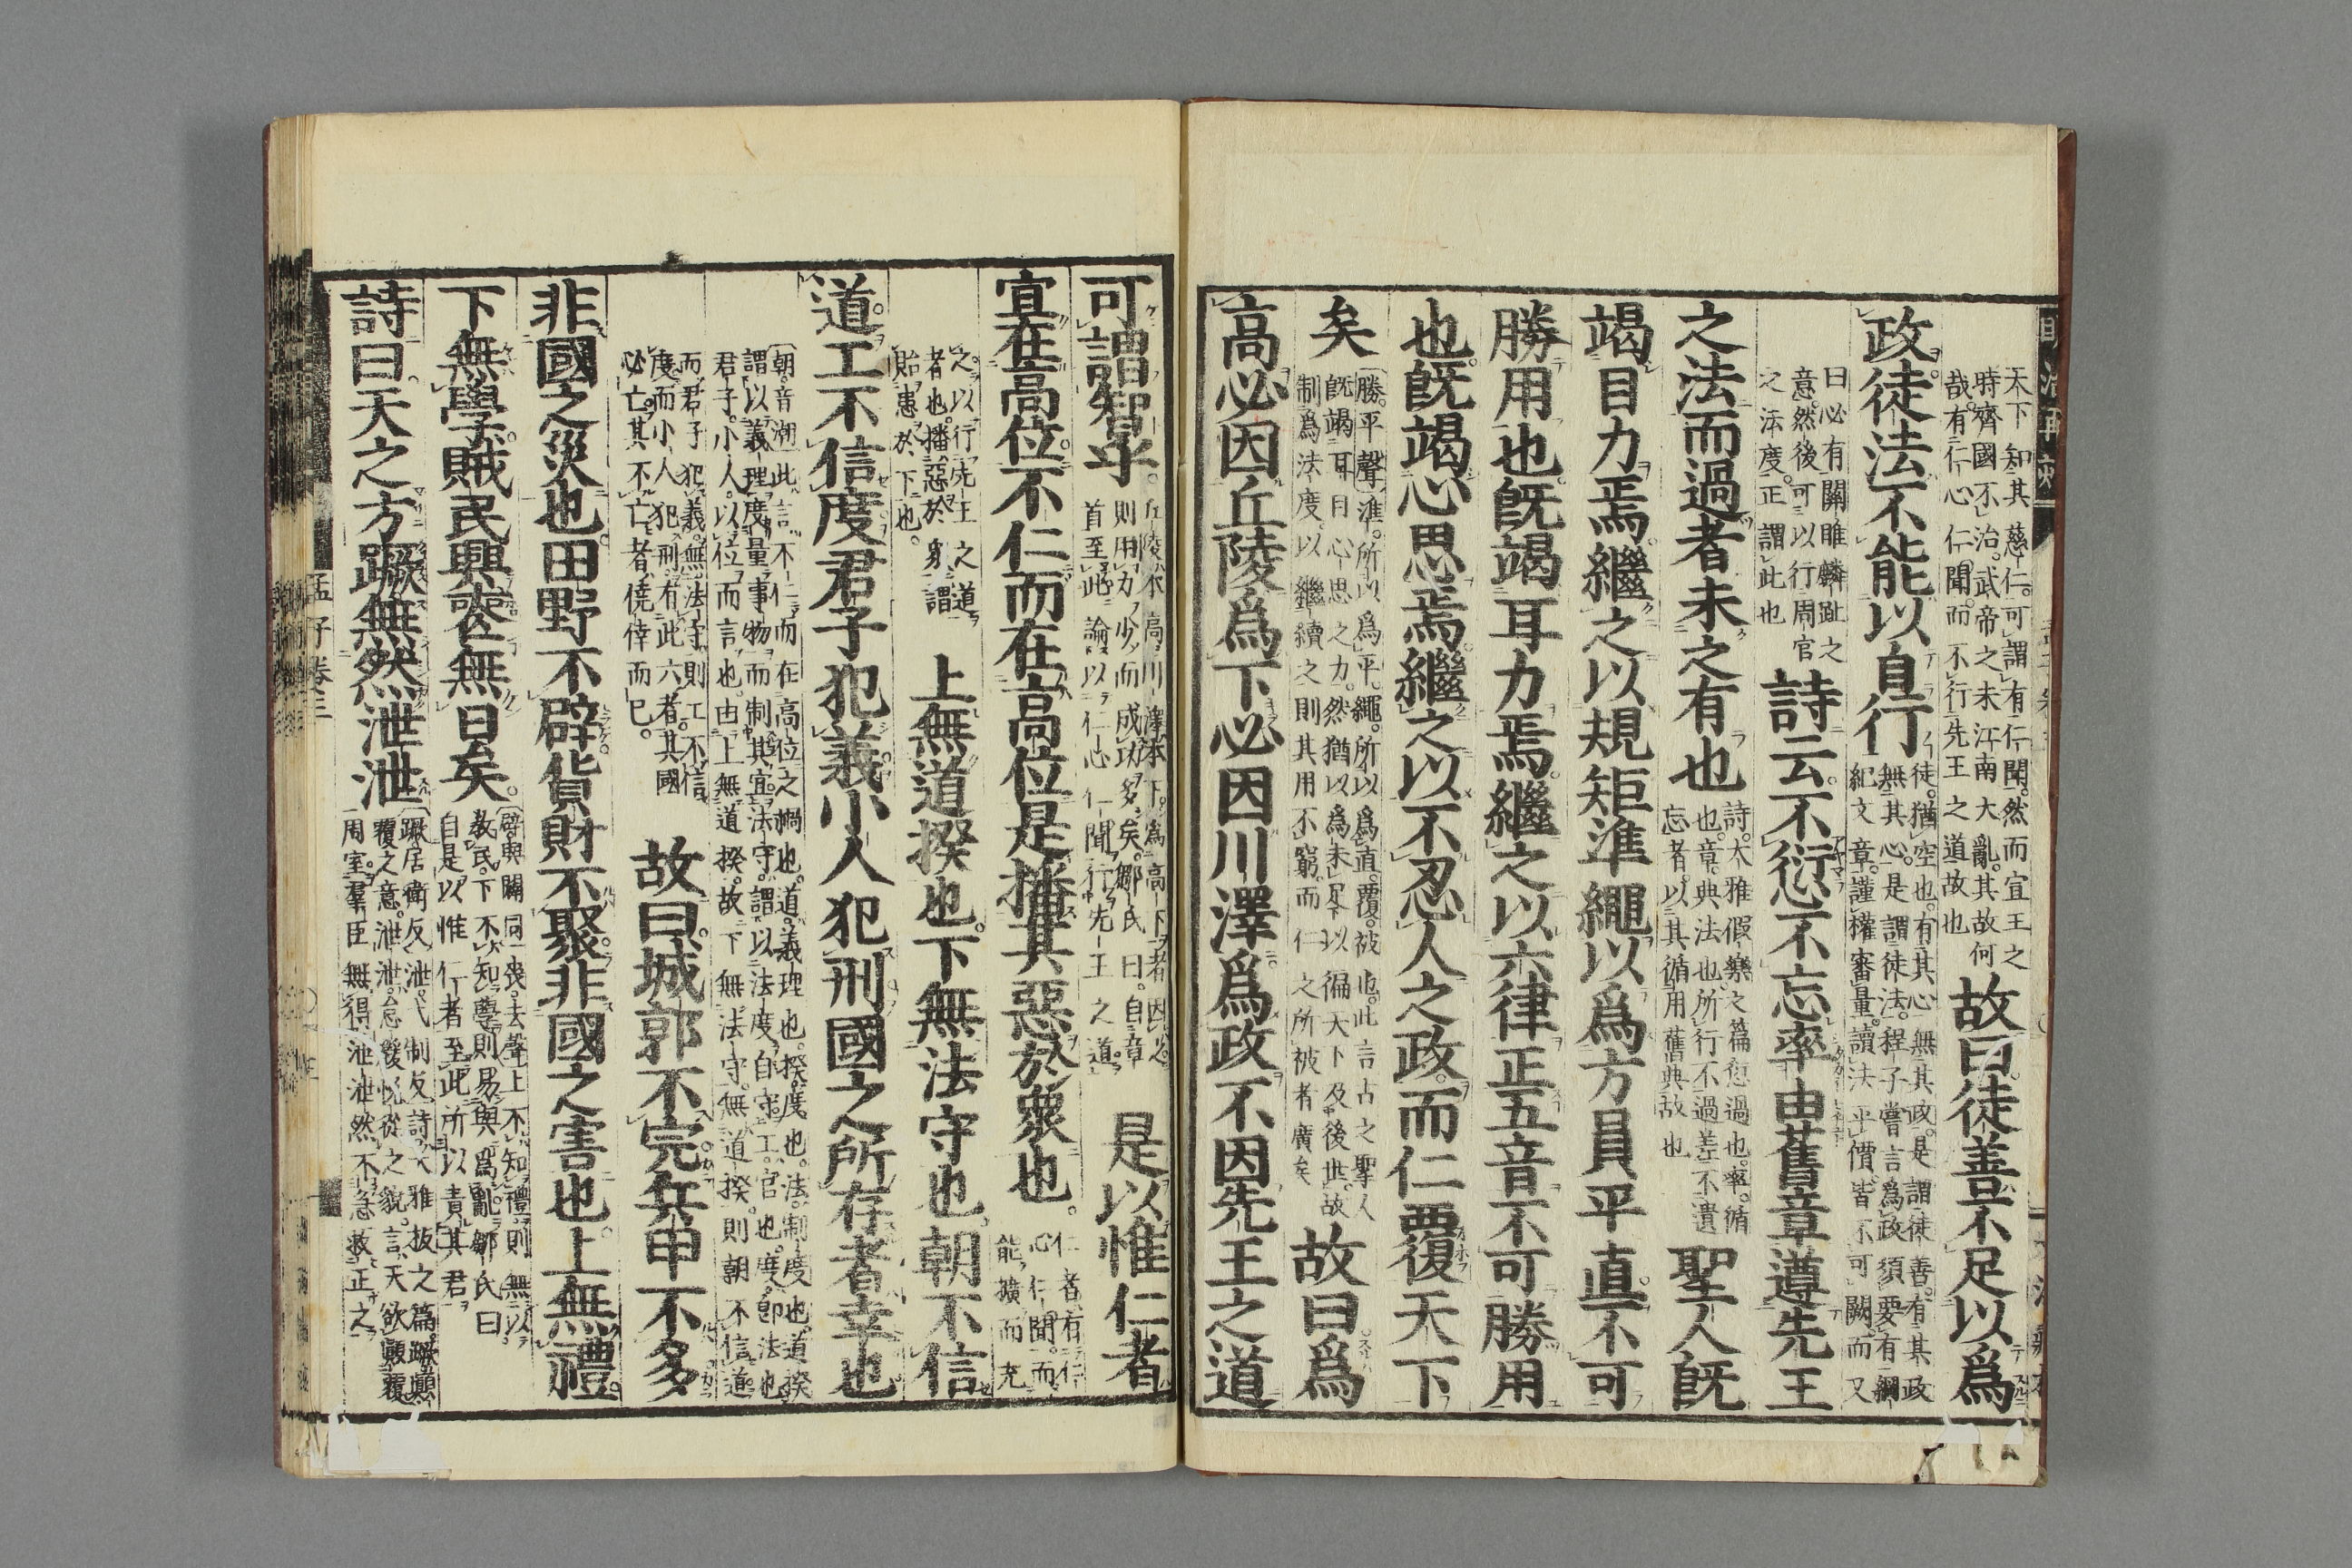 天下知其慈仁可謂有仁聞然而宣王之
時齊國不治武帝之末江南大亂其故何
哉有仁心仁聞而不行先王之道故也
故曰徒善不足以爲
政徒法不能以自行
徒猶空也有其心無其政是謂徒善有其政
無其心是謂徒法程子嘗言爲政須要有綱
紀文章謹權審量讀法平價皆不可闕而又
曰必有關雎麟趾之
意然後可以行周官
之法度正謂此也
詩云不愆不忘率由舊章遵先王
之法而過者未之有也
詩大雅假樂之篇愆過也率循
也章典法也所行不過差不遺
忘者以其循用舊典故也
聖人旣
竭目力焉繼之以規矩準繩以爲方員平直不可
勝用也旣竭耳力焉繼之以六律正五音不可勝用
也旣竭心思焉繼之以不忍人之政而仁覆天下
矣
勝平聲準所以爲平繩所以爲直覆被也此言古之聖人
旣竭耳目心思之力然猶以爲未足以徧天下及後世故
制爲法度以繼續之則其用不窮而仁之所被者廣矣
故曰爲
高必因丘陵爲下必因川澤爲政不因先王之道
可謂智乎
丘陵本高川澤本下爲高下者因之
則用力少而成功多矣鄒氏曰自章
首至此論以仁心仁聞行先王之道
是以惟仁者
宜在高位不仁而在高位是播其惡於衆也
仁者有仁
心仁聞而
能擴而充
之以行先王之道
者也播惡於衆謂
貽患於下也
上無道揆也下無法守也朝不信
道工不信度君子犯義小人犯刑國之所存者幸也
朝音潮此言不仁而在高位之禍也道義理也揆度也法制度也道揆
謂以義理度量事物而制其宜法守謂以法度自守工官也度卽法也
君子小人以位而言也由上無道揆故下無法守無道揆則朝不信道
而君子犯義無法守則工不信
度而小人犯刑有此六者其國
必亡其不亡者僥倖而已
故曰城郭不完兵甲不多
非國之災也田野不辟貨財不聚非國之害也上無禮
下無學賊民興喪無日矣
辟與闢同喪去聲上不知禮則無以
敎民下不知學則易與爲亂鄒氏曰
自是以惟仁者至此所以責其君
詩曰天之方蹶無然泄泄
蹶居衛反泄弋制反詩大雅板之篇蹶顚
覆之意泄泄怠緩悅從之貌言天欲顚覆
周室羣臣無得泄泄然不急救正之
孟子卷三